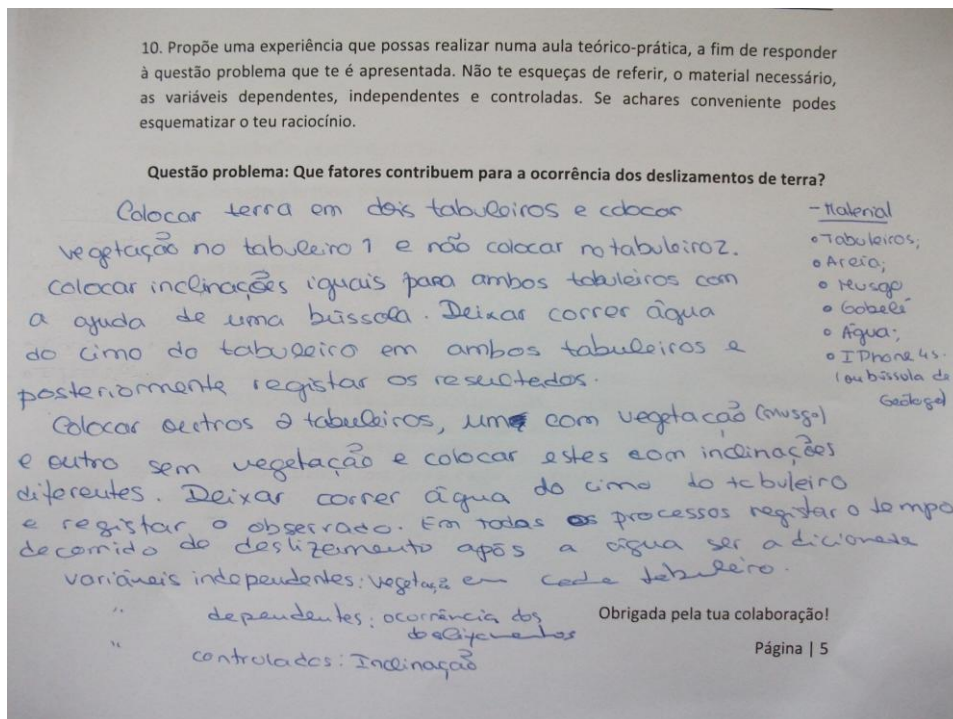 10. Propõe uma experiência que possas realizar numa aula teórico-prática, a fim de responder
à questão problema que te é apresentada. Não te esqueças de referir, o material necessário,
as variáveis dependentes, independentes e controladas. Se achares conveniente podes
esquematizar o teu raciocínio.
Questão problema: Que fatores contribuem para a ocorrência dos deslizamentos de terra?
Colocar terra em dois tabuleiros e colocar
vegetação no tabuleiro 1 e não colocar no tabuleiro 2.
Colocar inclinações iguais para ambos tabuleiros com
a ajuda de uma bússola. Deixar correr água
do cimo do tabuleiro em ambos tabuleiros e
posteriormente registar os resultados.
Colocar outros 2 tabuleiros, um com vegetação (musgo)
e outro sem vegetação e colocar estes com inclinações
diferentes. Deixar correr água do cimo do tabuleiro
e registar o observado. Em todos os processos registar o tempo
decorrido do deslizamento após a água ser adicionada
variáveis independentes: vegetação em cada tabuleiro.
" dependentes: ocorrência dos
deslizamentos
" controlados: Inclinação
- Material
• Tabuleiros;
• Areia;
• Musgo
• Gobelé
• Água;
• IPhone 4s.
(ou bússola de
Geólogo)
Obrigada pela tua colaboração!
Página | 5